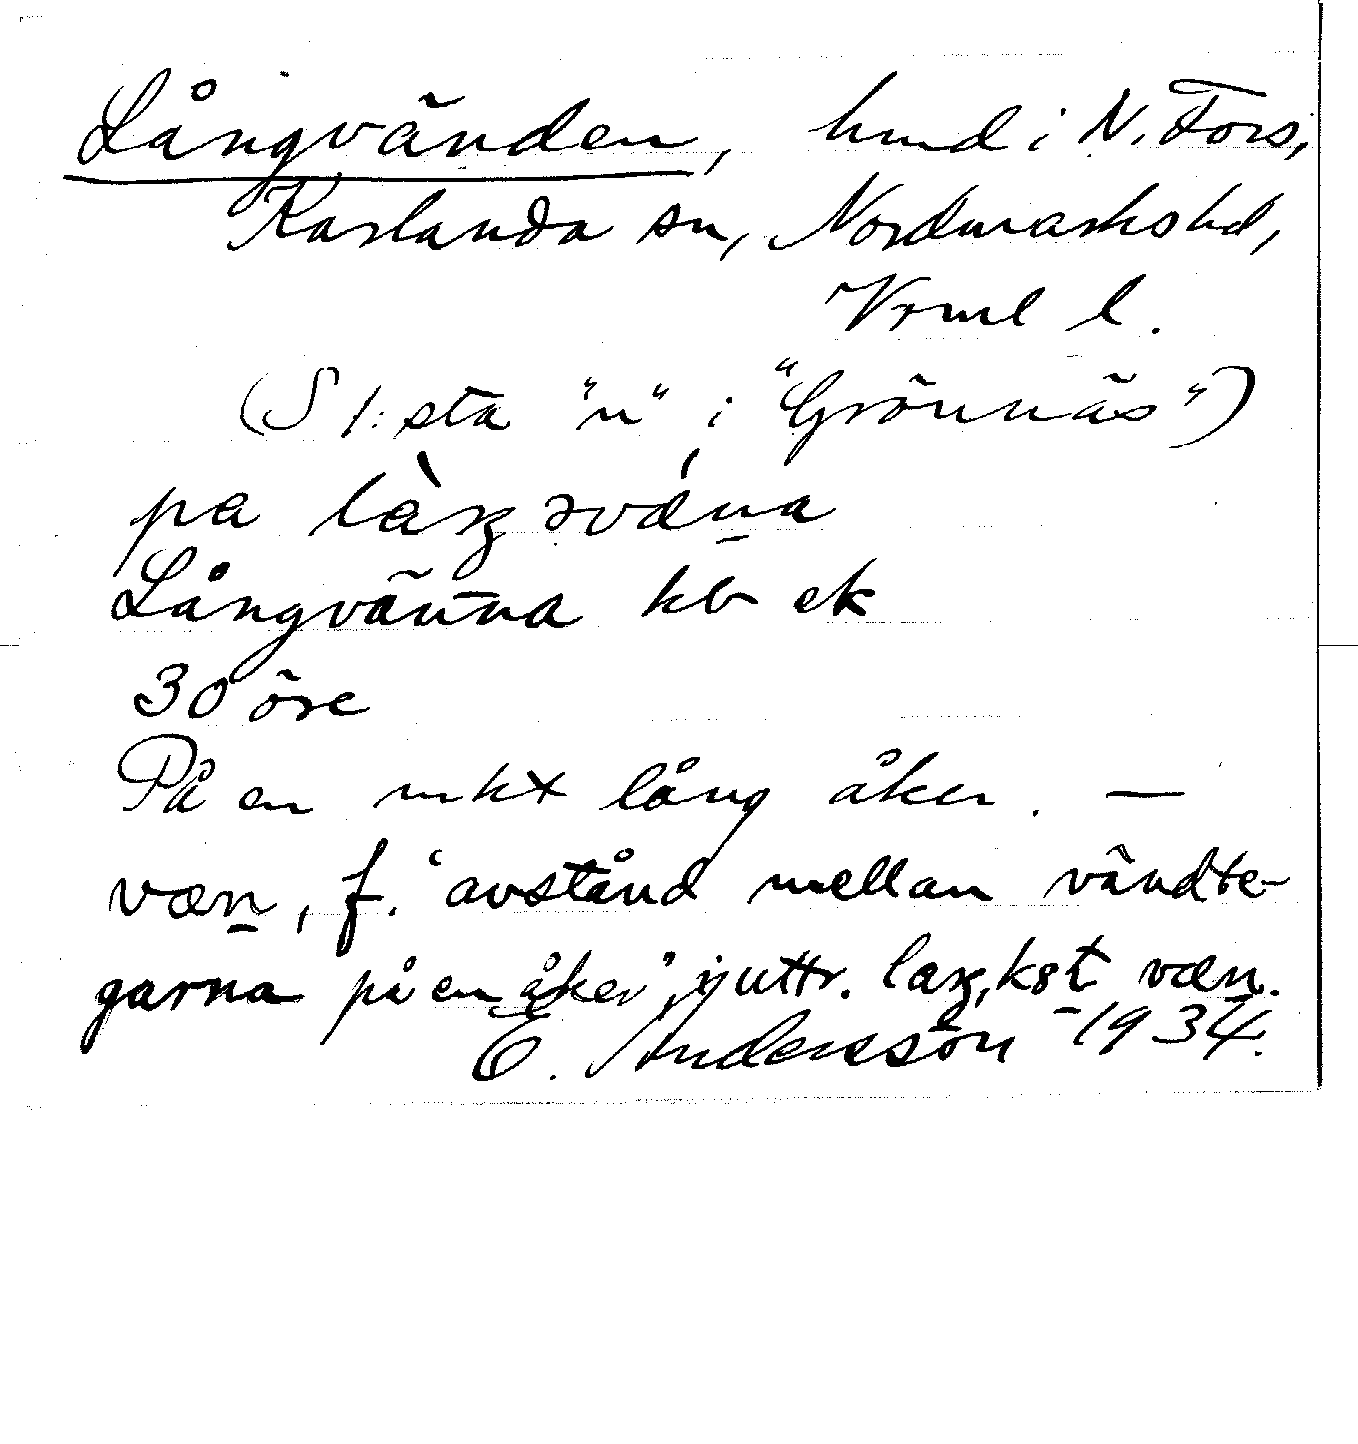 Långvänden, hmd i N. Fors,
Karlanda sn, Nordmarks hd,
Vrml l.
(S 1:sta "n" i "Grönnäs")
pa làŋ svǽna
Långvänna kb ek
30 öre
På en mkt lång åker. —
væn, f. 'avstånd mellan vändte-
garna på en åker', i uttr. laŋ,kst væn.
E. Andersson 1934.